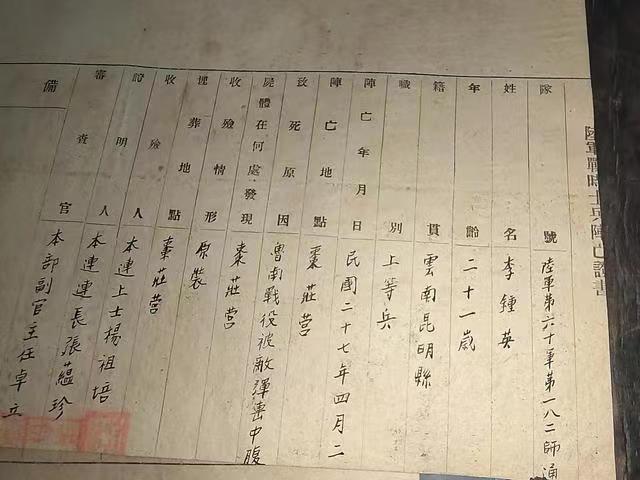 陸軍戰時士兵陣亡證書
隊號 陸軍第六十軍第一八二師通
姓名 李鍾英
年齡 二十一歲
籍貫 雲南昆明縣
職別 上等兵
陣亡年月日 民國二十七年四月二
陣亡地點 棗莊營
致死原因 魯南戰役被敵彈擊中腹
屍體在何處發現 棗莊營
收殮情形 原裝
埋葬地點 棗莊營
收殮人 本連上士楊祖培
證明人 本連連長張蘊珍
審查官 本部副官主任卓立
備